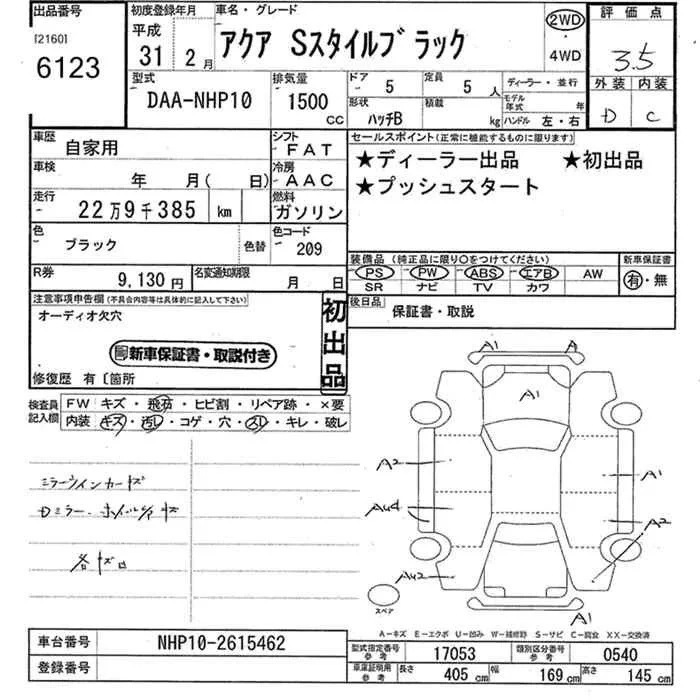 出品番号
[2160]
6123
初度登録年月
平成
31 2 月
車名・グレード
アクア Sスタイルブラック
2WD
・
4WD
評価点
3.5
外装 内装
D C
型式
DAA-NHP10
排気量
1500
CC
ドア
5
定員
5 人
ディーラー・並行
形状
ハッチB
積載
kg
モデル年式
年
ハンドル 左・右
車歴
自家用
シフト
FAT
車検
年 月( 日)
冷房
AAC
走行
22万9千385 km
燃料
ガソリン
色
ブラック
色替
色コード
209
R券
9,130 円
名変通知期限
月 日
セールスポイント(正常に機能するものに限ります)
★ディーラー出品 ★初出品
★プッシュスタート
装備品 (純正品に限り○をつけてください)
新車保証書
PS PW ABS エアB AW
SR ナビ TV カワ
有・無
注意事項申告欄(不具合内容等は具体的に記入して下さい)
オーディオ欠穴
新車保証書・取説付き
初出品
修復歴 有〔箇所
後日品
保証書・取説
検査員記入欄
FW キズ・飛石・ヒビ割・リペア跡・×要
内装 キズ・汚レ・コゲ・穴・スレ・キレ・破レ
ミラーウインカーキズ
Dミラー・ホイルレイヤキズ
各キズ凹
A1 A
A1
A2
A1
AUd
A2
AU2
A1
スペア
A-キズ E-エクボ U-凹み W-補修跡 S-サビ C-腐食 XX-交換済
車台番号
NHP10-2615462
登録番号
型式指定番号
参考
17053
類別区分番号
参考
0540
車庫証明用
参考
長さ
405 cm
幅
169 cm
高さ
145 cm